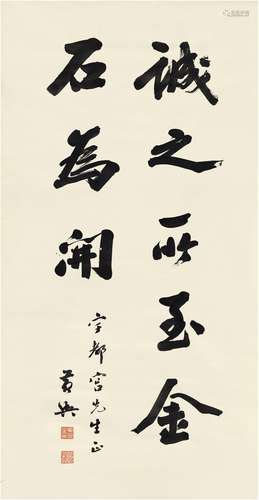 誠之所至金
石為開
宇都宮先生正
黃興